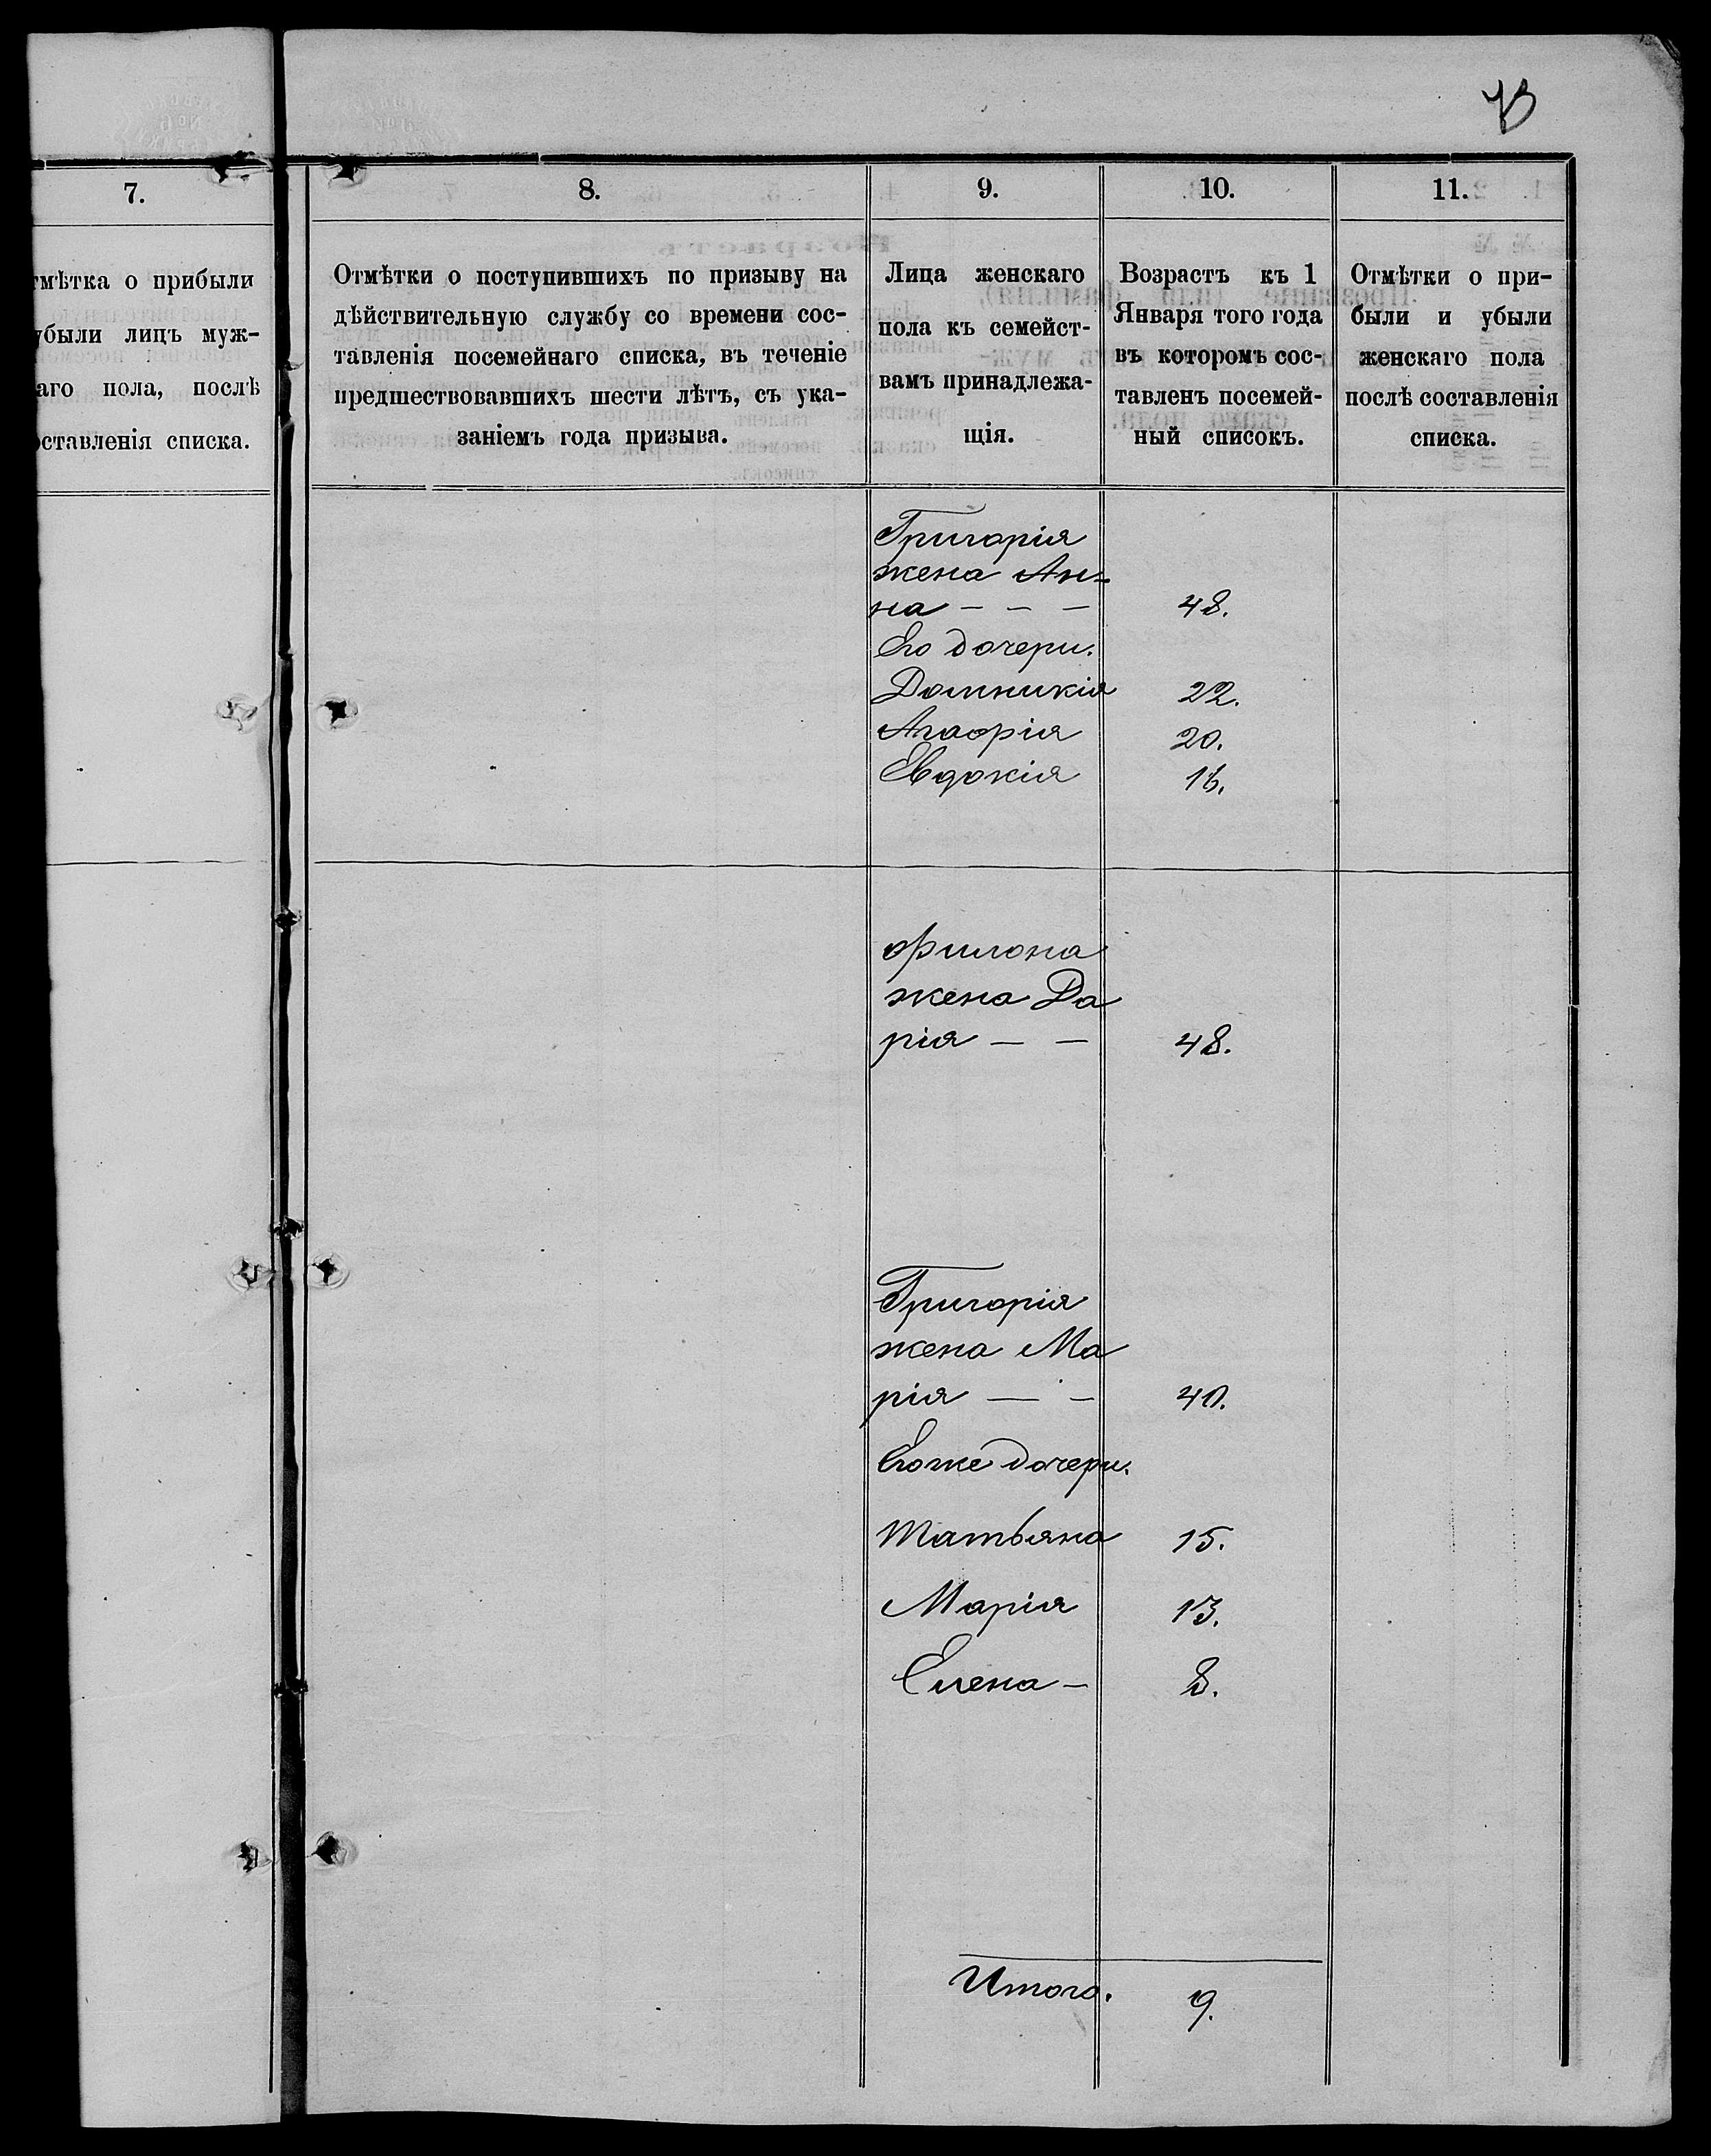 73
7.
тмѣтка о прибыли
убыли лицъ муж-
аго пола, послѣ
оставленія списка.
8.
Отмѣтки о поступившихъ по призыву на
дѣйствительную службу со времени сос-
тавленія посемейнаго списка, въ теченіе
предшествовавшихъ шести лѣтъ, съ ука-
заніемъ года призыва.
9.
Лица женскаго
пола къ семейст-
вамъ принадлежа-
щія.
10.
Возрастъ къ 1
Января того года
въ которомъ сос-
тавленъ посемей-
ный списокъ.
11.
Отмѣтки о при-
были и убыли
женскаго пола
послѣ составленія
списка.
Григорія
жена Ан-
на - - - 48.
Его дочери.
Домникія 22.
Агафія 20.
Евдокія 16.
Филона
жена Да
рія - - 48.
Григорія
жена Ма
рія - - 40.
Егоже дочери.
Татьяна 15.
Марія 13.
Елена - 8.
Итого. 9.